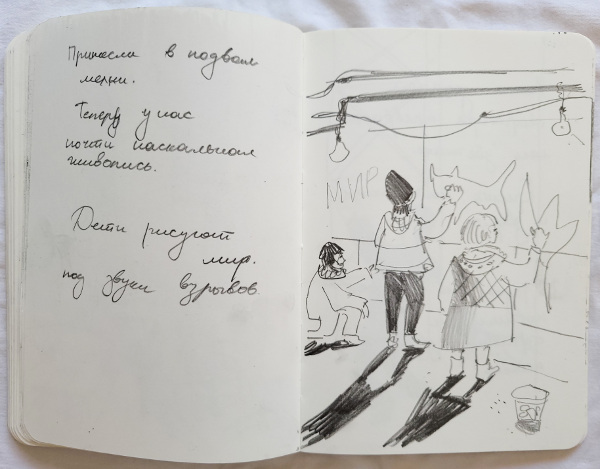 Принесли в подвал
мелки.
Теперь у нас
почти наскальная
живопись.
Дети рисуют
мир.
под звуки взрывов.
МИР